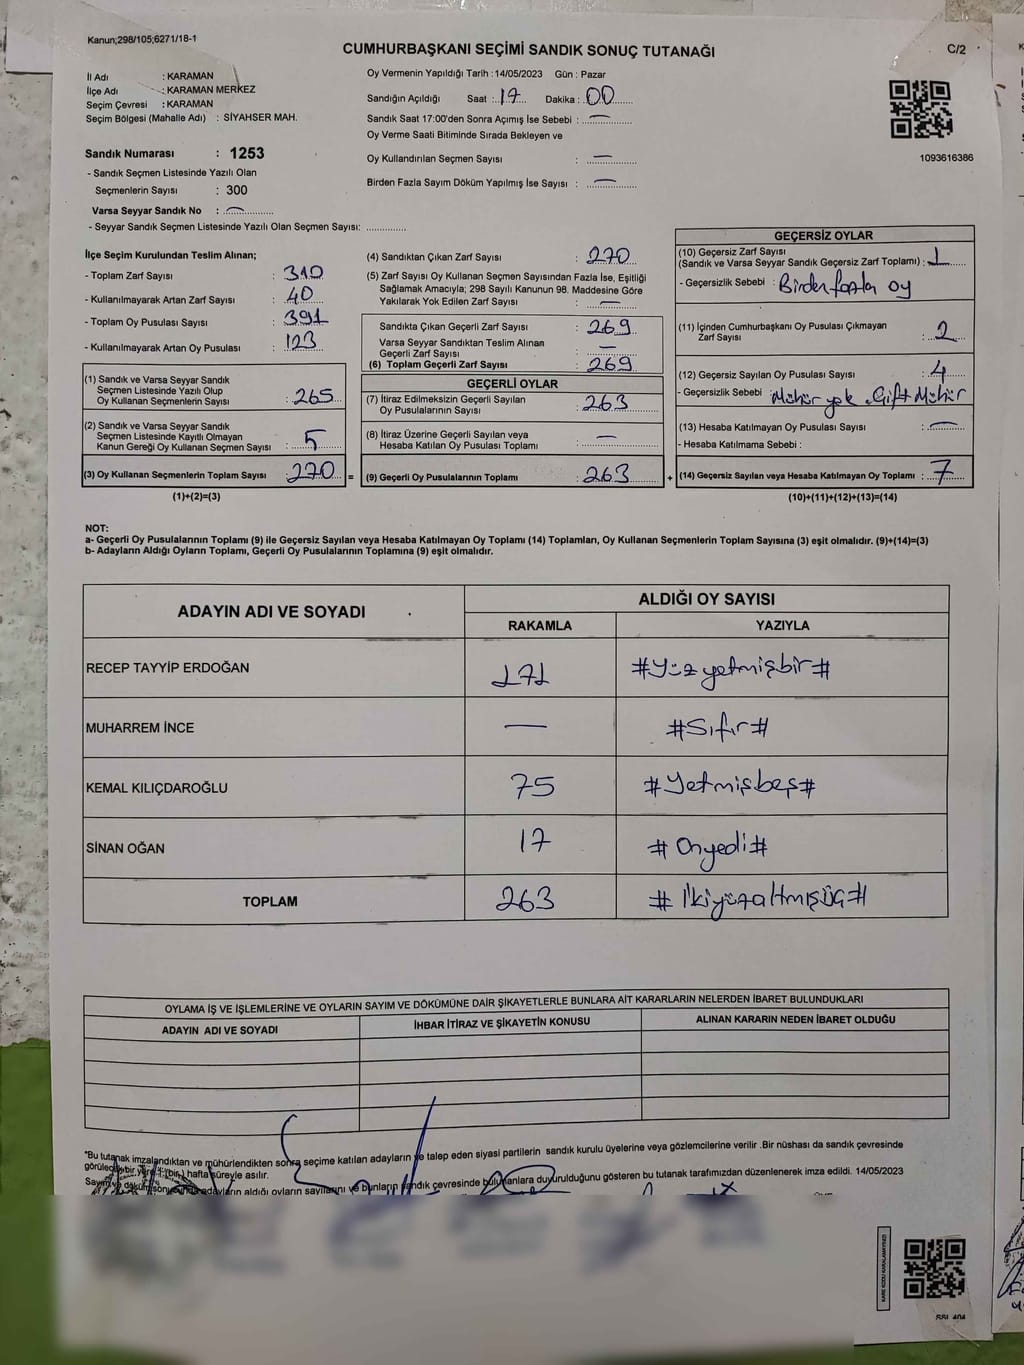 Kanun;298/105;6271/18-1
CUMHURBAŞKANI SEÇİMİ SANDIK SONUÇ TUTANAĞI
C/2
İl Adı : KARAMAN
İlçe Adı : KARAMAN MERKEZ
Seçim Çevresi : KARAMAN
Seçim Bölgesi (Mahalle Adı) : SİYAHSER MAH.
Sandık Numarası : 1253
- Sandık Seçmen Listesinde Yazılı Olan
Seçmenlerin Sayısı : 300
Varsa Seyyar Sandık No : —
- Seyyar Sandık Seçmen Listesinde Yazılı Olan Seçmen Sayısı: ..............
Oy Vermenin Yapıldığı Tarih :14/05/2023 Gün : Pazar
Sandığın Açıldığı Saat : 17 Dakika : 00
Sandık Saat 17:00'den Sonra Açımış İse Sebebi : —
Oy Verme Saati Bitiminde Sırada Bekleyen ve
Oy Kullandırılan Seçmen Sayısı : —
Birden Fazla Sayım Döküm Yapılmış İse Sayısı : —
1093616386
İlçe Seçim Kurulundan Teslim Alınan;
- Toplam Zarf Sayısı : 310
- Kullanılmayarak Artan Zarf Sayısı : 40
- Toplam Oy Pusulası Sayısı : 391
- Kullanılmayarak Artan Oy Pusulası : 123
(1) Sandık ve Varsa Seyyar Sandık
Seçmen Listesinde Yazılı Olup
Oy Kullanan Seçmenlerin Sayısı : 265
(2) Sandık ve Varsa Seyyar Sandık
Seçmen Listesinde Kayıtlı Olmayan
Kanun Gereği Oy Kullanan Seçmen Sayısı : 5
(3) Oy Kullanan Seçmenlerin Toplam Sayısı : 270 =
(1)+(2)=(3)
(4) Sandıktan Çıkan Zarf Sayısı : 270
(5) Zarf Sayısı Oy Kullanan Seçmen Sayısından Fazla İse, Eşitliği
Sağlamak Amacıyla; 298 Sayılı Kanunun 98. Maddesine Göre
Yakılarak Yok Edilen Zarf Sayısı : —
Sandıkta Çıkan Geçerli Zarf Sayısı : 269
Varsa Seyyar Sandıktan Teslim Alınan
Geçerli Zarf Sayısı : —
(6) Toplam Geçerli Zarf Sayısı : 269
GEÇERLİ OYLAR
(7) İtiraz Edilmeksizin Geçerli Sayılan
Oy Pusulalarının Sayısı : 263
(8) İtiraz Üzerine Geçerli Sayılan veya
Hesaba Katılan Oy Pusulası Toplamı : —
(9) Geçerli Oy Pusulalarının Toplamı : 263 +
GEÇERSİZ OYLAR
(10) Geçersiz Zarf Sayısı
(Sandık ve Varsa Seyyar Sandık Geçersiz Zarf Toplamı) : 1
- Geçersizlik Sebebi : Birden fazla oy
(11) İçinden Cumhurbaşkanı Oy Pusulası Çıkmayan
Zarf Sayısı : 2
(12) Geçersiz Sayılan Oy Pusulası Sayısı : 4
- Geçersizlik Sebebi : Mühür yok, Çift Mühür
(13) Hesaba Katılmayan Oy Pusulası Sayısı : —
- Hesaba Katılmama Sebebi :
(14) Geçersiz Sayılan veya Hesaba Katılmayan Oy Toplamı : 7
(10)+(11)+(12)+(13)=(14)
NOT:
a- Geçerli Oy Pusulalarının Toplamı (9) ile Geçersiz Sayılan veya Hesaba Katılmayan Oy Toplamı (14) Toplamları, Oy Kullanan Seçmenlerin Toplam Sayısına (3) eşit olmalıdır. (9)+(14)=(3)
b- Adayların Aldığı Oyların Toplamı, Geçerli Oy Pusulalarının Toplamına (9) eşit olmalıdır.
ADAYIN ADI VE SOYADI
ALDIĞI OY SAYISI
RAKAMLA YAZIYLA
RECEP TAYYİP ERDOĞAN 171 #Yüzyetmişbir#
MUHARREM İNCE — #Sıfır#
KEMAL KILIÇDAROĞLU 75 #Yetmişbeş#
SİNAN OĞAN 17 #Onyedi#
TOPLAM 263 #İkiyüzaltmışüÇ#
OYLAMA İŞ VE İŞLEMLERİNE VE OYLARIN SAYIM VE DÖKÜMÜNE DAİR ŞİKAYETLERLE BUNLARA AİT KARARLARIN NELERDEN İBARET BULUNDUKLARI
ADAYIN ADI VE SOYADI İHBAR İTİRAZ VE ŞİKAYETİN KONUSU ALINAN KARARIN NEDEN İBARET OLDUĞU
*Bu tutanak imzalandıktan ve mühürlendikten sonra seçime katılan adayların ve talep eden siyasi partilerin sandık kurulu üyelerine veya gözlemcilerine verilir .Bir nüshası da sandık çevresinde
görülecek bir yere 1 (bir ) hafta süreyle asılır.
Sayım ve döküm sonucunda adayların aldığı oyların sayılarını ve bunların sandık çevresinde bulunanlara duyurulduğunu gösteren bu tutanak tarafımızdan düzenlenerek imza edildi. 14/05/2023
KARE KODU KARALAMAYINIZ!